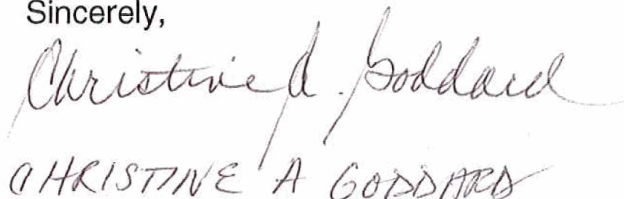 Sincerely,
Christine A. Goddard
CHRISTINE A GODDARD